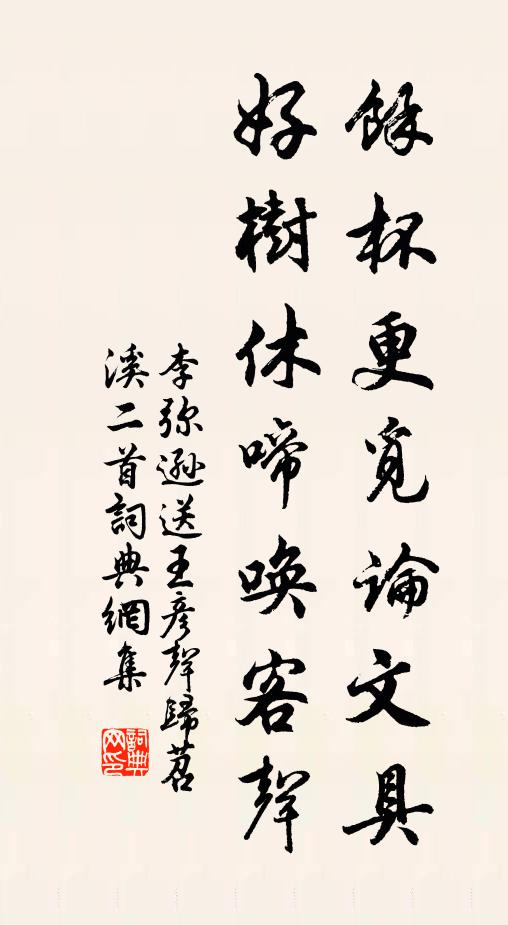 餘杯更覓論文具
好樹休啼喚客聲
李弥遜送王彥聲歸苕
溪二首詞典網集
詞典
网印